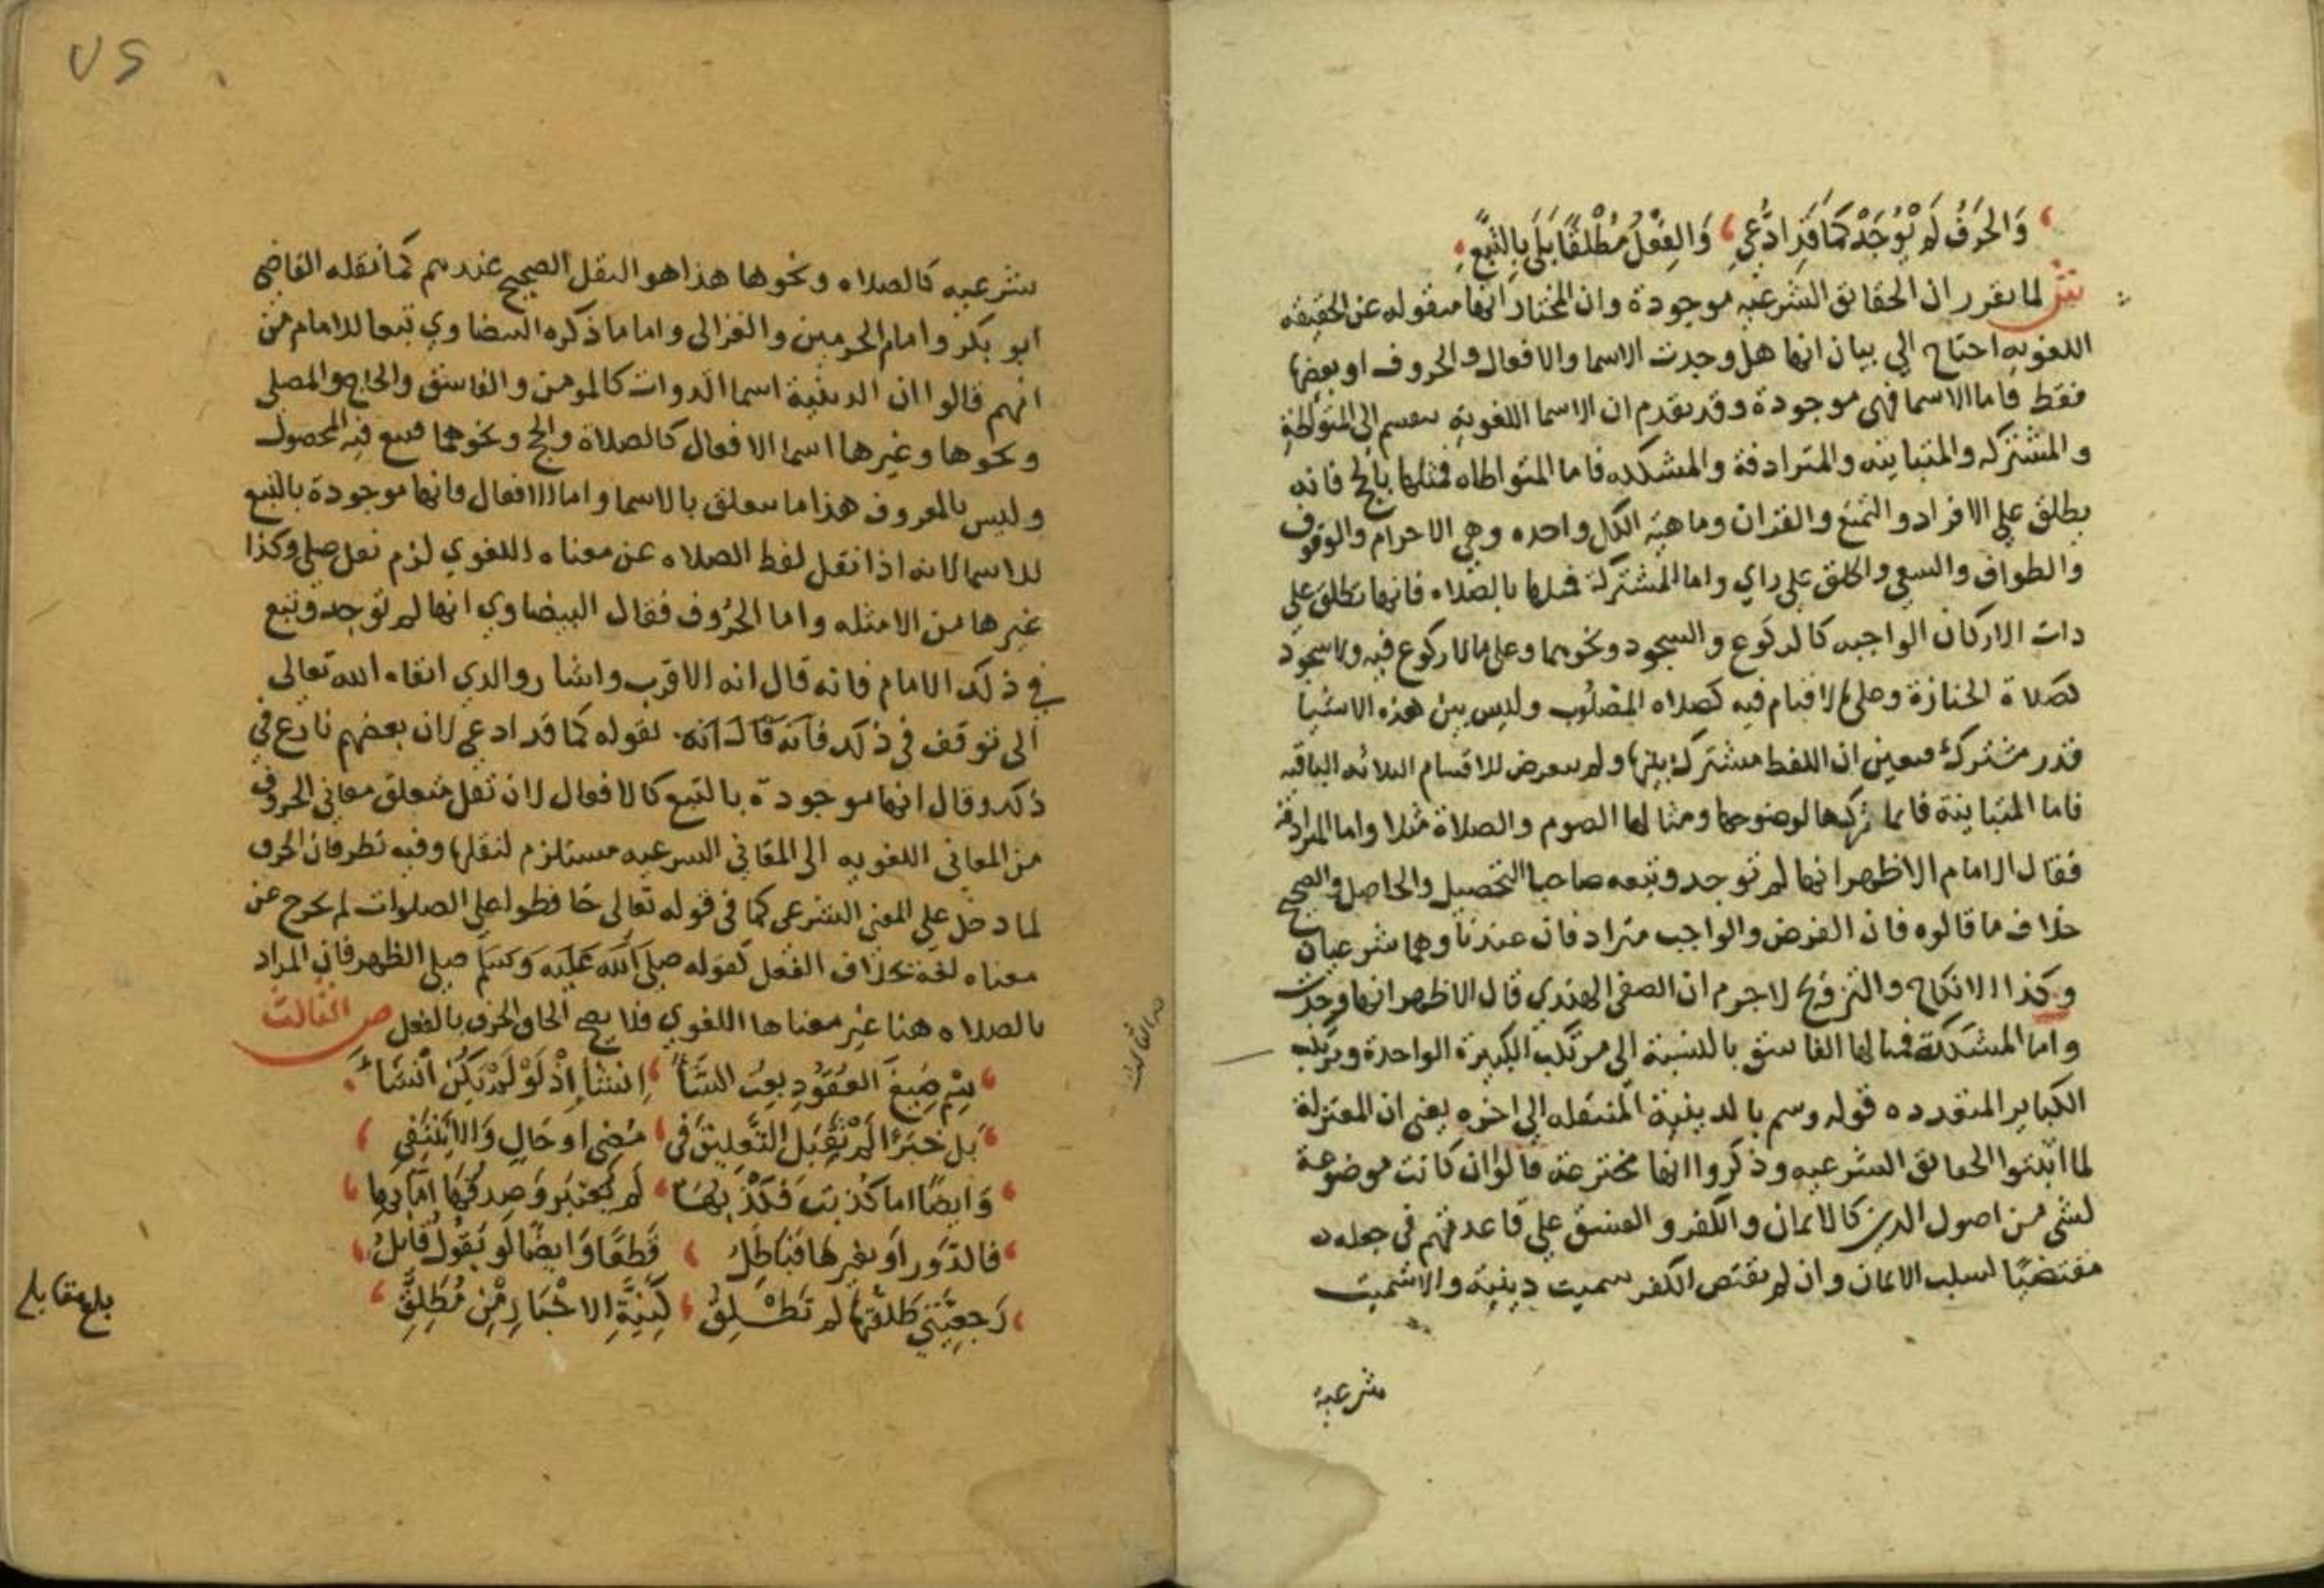 وَالحَرفُ لَم تُوجَدْ كَمَا قَدِ ادُّعِي وَالفِعْلُ مُطْلَقًا بَلَى بِالتَّبَعِ
ش لما تقرر ان الحقائق الشرعيه موجودة وان المختار انها منقوله عن الحقيقه
اللغويه احتاج الي بيان انها هل وجدت الاسما والافعال والحروف او بعضها
فقط فاما الاسما فهى موجودة وقد تقدم ان الاسما اللغوية تنقسم الى المتواطئة
والمشتركه والمتباينه والمترادفة والمشككه فاما المتواطاه فمثلها بالحج فانه
يطلق علي الافراد والتمتع والقران وماهية الكل واحده وهي الاحرام والوقوف
والطواف والسعي والحلق على راي واما المشتركة فمثلها بالصلاه فانها تطلق على
دات الاركان الواجبه كالركوع والسجود ونحوهما وعلى مالا ركوع فيه ولا سجود
كصلاة الجنازة وعلى مالا قيام فيه كصلاه المصلوب وليس بين هذه الاشيا
قدر مشترك فتعين ان اللفظ مشترك بينها ولم يتعرض للاقسام الثلاثه الباقيه
فاما المتباينة فانما تركها لوضوحها ومثالها الصوم والصلاة مثلا واما المترادفة
فقال الامام الاظهر انها لم توجد وتبعه صاحبا التحصيل والحاصل والصحيح
خلاف ما قالوه فان الفرض والواجب مترادفان عندنا وهما شرعيان
وكذا الانكاح والتزويج لاجرم ان الصفي الهندي قال الاظهر انها وجدت
واما المشككة فمثالها الفاسق بالنسبة الى مرتكب الكبيرة الواحدة ومرتكب
الكباير المتعدده قوله وسم بالدينية المنتقله الى اخره يعني ان المعتزلة
لما اثبتوا الحقائق الشرعيه وذكروا انها مخترعة قالوا ان كانت موضوعة
لشي من اصول الدين كالايمان والكفر والفسق علي قاعدتهم في جعله
مقتضيًا لسلب الايمان وان لم يقتض الكفر سميت دينية والا سميت
شرعية
شرعيه كالصلاه ونحوها هذا هو النقل الصحيح عندهم كما نقله القاضي
ابو بكر وامام الحرمين والغزالى واما ما ذكره البيضاوي تبعا للامام من
انهم قالوا ان الدينية اسما الذوات كالمومن والفاسق والحاج والمصلي
ونحوها وغيرها اسما الافعال كالصلاة والحج ونحوهما فتبع فيه المحصول
وليس بالمعروف هذا ما يتعلق بالاسما واما الافعال فانها موجودة بالتبع
للاسما لانه اذا نقل لفظ الصلاه عن معناه اللغوي لزم نقل صلى وكذا
غيرها من الامثله واما الحُرُوف فقال البيضاوي انها لم توجد وتبع
في ذلك الامام فانه قال انه الاقرب واشار والدي ابقاه الله تعالى
الى توقف في ذلك فانه قال انه لقوله كما قد ادعي لان بعضهم نازع في
ذلك وقال انها موجودة بالتبع كالافعال لان نقل متعلق معاني الحروف
من المعاني اللغويه الى المعاني الشرعيه مستلزم لنقلها وفيه نظر فان الحرف
لما دخل علي المعنى الشرعي كما في قوله تعالى حافظوا على الصلوات لم يخرج عن
معناه لغة بخلاف الفعل كقوله صلى الله عليه وسلم صلى الظهر فان المراد
بالصلاه هنا غير معناها اللغوي فلا يصح الحاق الحرف بالفعل ص الثالث
ثم صيغ العقود بعت انشأ انشا اذ لو لم يكن انشا
بل خبرًا لم تقبل التعليق في مضى او حال والا ينتفي
وايضًا اما كذبت فكذبها لم يعتبر وصدقها اما بها
فالدور او بغيرها فباطل قطعًا وايضًا لو يقول قائل
رجعيتي طلقتها لم تطلق كنية الاخبار من مطلق
الثالث
بلغ مقابلة